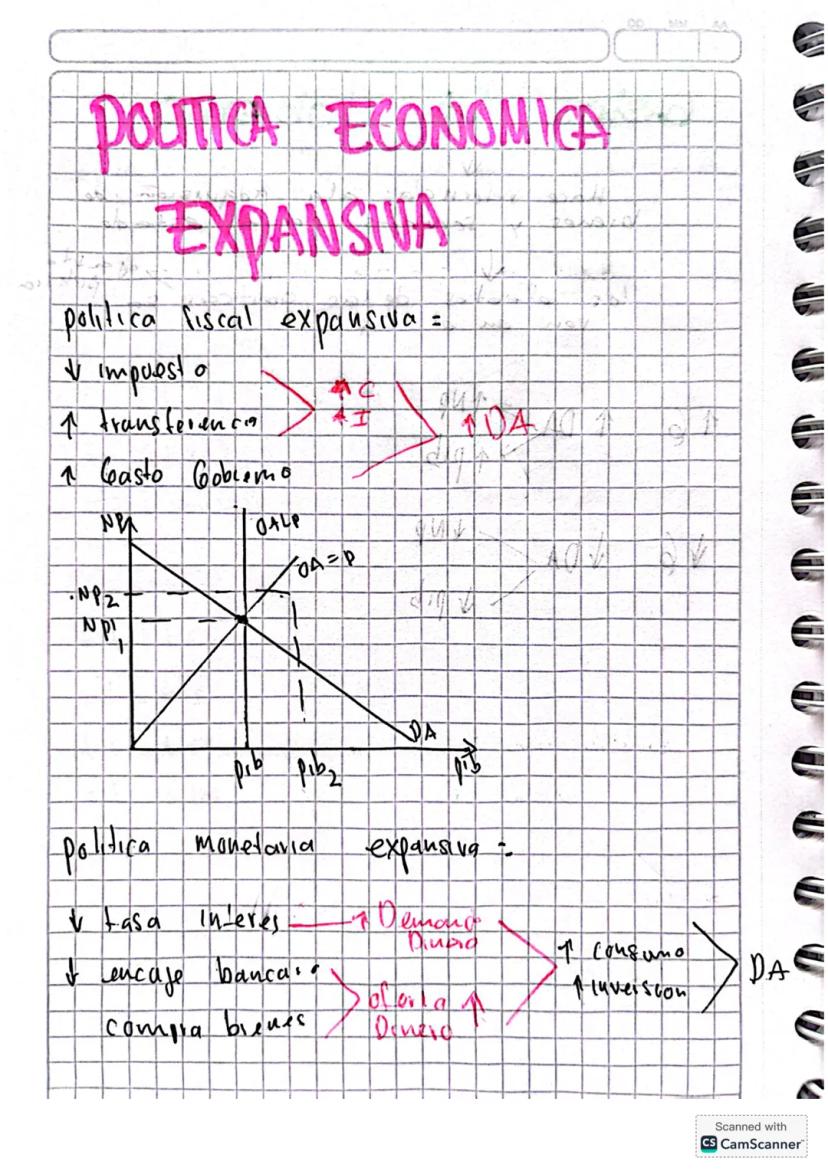 POLITICA ECONOMICA
EXPANSIVA
politica fiscal expansiva =
↓ impuesto
↑ transferencia
↑ C
↑ I
↑ DA
↑ Gasto Gobierno
NP
OALP
OA = P
NP2
NP1
1
DA
pib
pib2
pib
politica monetaria expansiva =
↓ tasa interes
↑ Demand
Dinero
↓ encaje bancario
↑ consumo
↑ inversion
DA
compra bienes
oferta ↑
Dinero
Scanned with
CS CamScanner